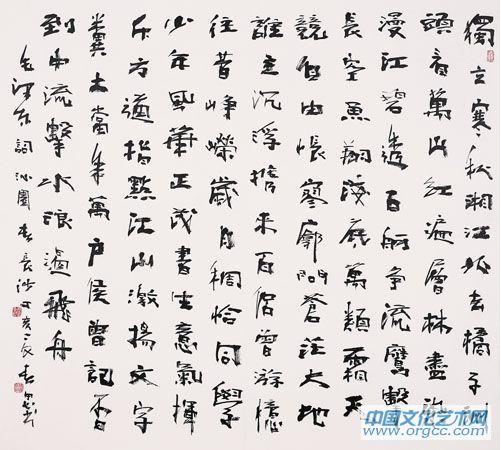 獨立寒秋湘江北去橘子洲
頭看萬山紅遍層林盡染
漫江碧透百舸争流鷹擊
長空魚翔淺底萬類霜天
競自由悵寥廓問蒼茫大地
誰主沉浮携来百侣曾游憶
往昔崢嶸歲月稠恰同學
少年風華正茂書生意氣揮
斥方遒指點江山激揚文字
糞土當年萬户侯曾記否
到中流擊水浪遏飛舟
毛澤東詞沁園春長沙丁亥
中国文化艺术网
www.orgcc.com